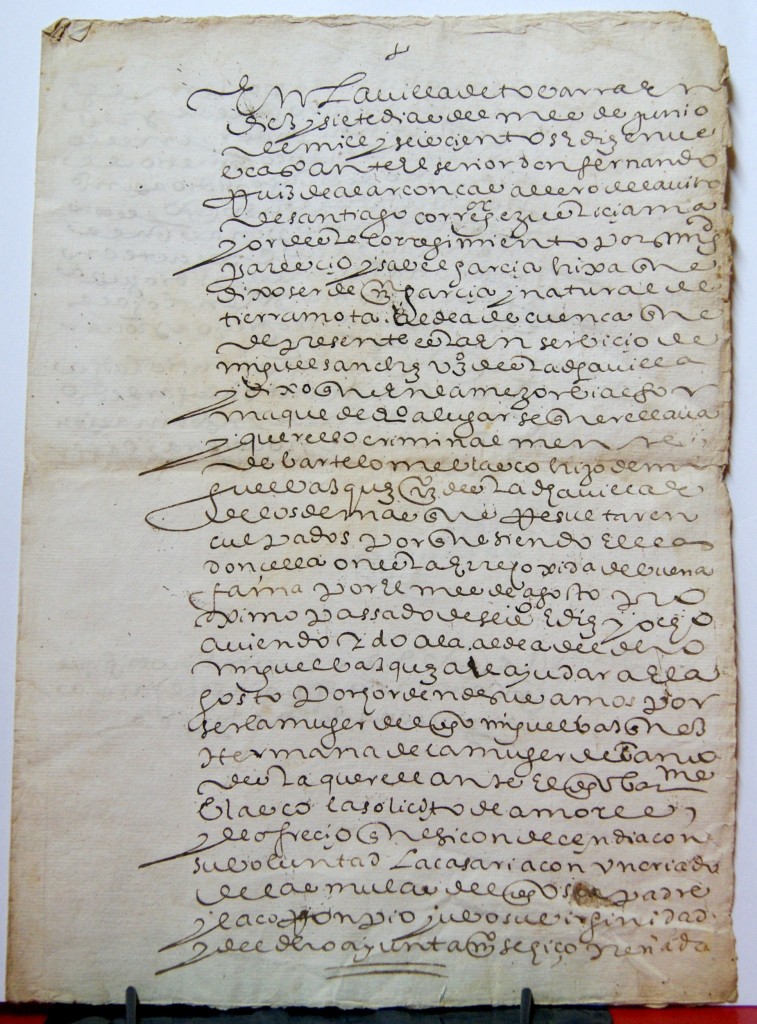 En la villa de tovarra en
diez y siete dias del mes de junio
de mill y seiscientos E diez e nue
be as ante el señor don fernando
Ruiz de alarcon caballero del avito
de santiago corr.or E justicia ma
yor deste corregimiento por su mgd
parecio ysabel garcia hixa que
dixo ser de garcia y natural de
tierra mota aldea de cuenca que
de presente esta en servicio de
miguel sanchez v.o desta dha villa
y dixo que en la mexor bia e for
ma que de dr.o a lugar se querellava
y querello criminal mente
de bartolome blasco hijo de mi
guel basquez v.o desta dha villa E
de los demas que Resultaren
culpados por que siendo Ella
doncella onesta E rrecoxida de buena
fama por El mes de agosto pro
ximo passado de seis.o E diez y ocho
aviendo ydo a la aldea del dho
miguel basquez a le ayudar a El a
gosto por horden de sus amos por
ser la muger del dho miguel basquez
Hermana de la muger del amo
desta querellante El dho bar.me
blasco la solicito de amores
y le ofrecio que si condecendia con
su voluntad la casaria con un criado
de las mulas del dho su padre
y la conRonpio y ubo su virginidad
y del dho ayuntam.o se hiço preñada